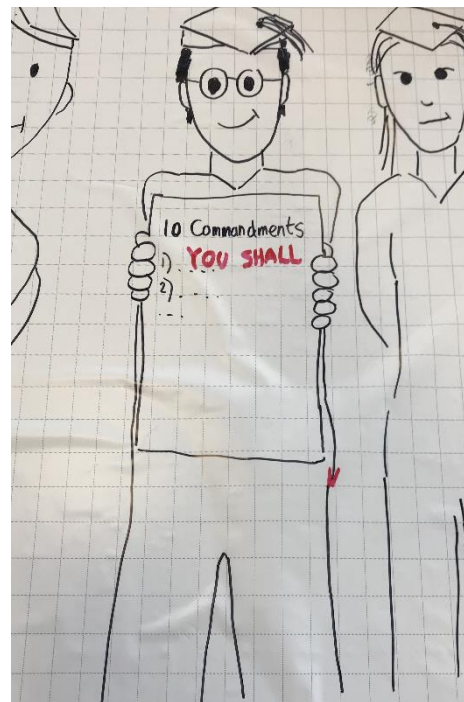 10 Commandments
YOU SHALL
1) ....
2) ....